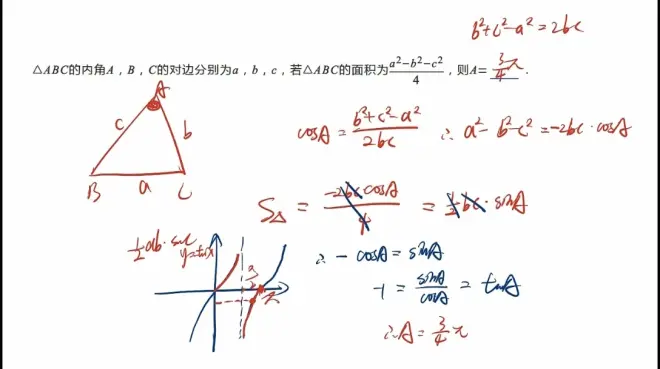 b²+c²-a²=2bc
△ABC的内角A，B，C的对边分别为a，b，c，若△ABC的面积为(a²-b²-c²)/4，则A=3/4π．
A
c b
B a C
cosA=(b²+c²-a²)/2bc ∴a²-b²-c²=-2bc·cosA
S△=(-2bc cosA)/4=1/2bc·sinA
1/2ab·sinC
y=tanx
π/2
π
∴-cosA=sinA
-1=sinA/cosA=tanA
∴A=3/4π